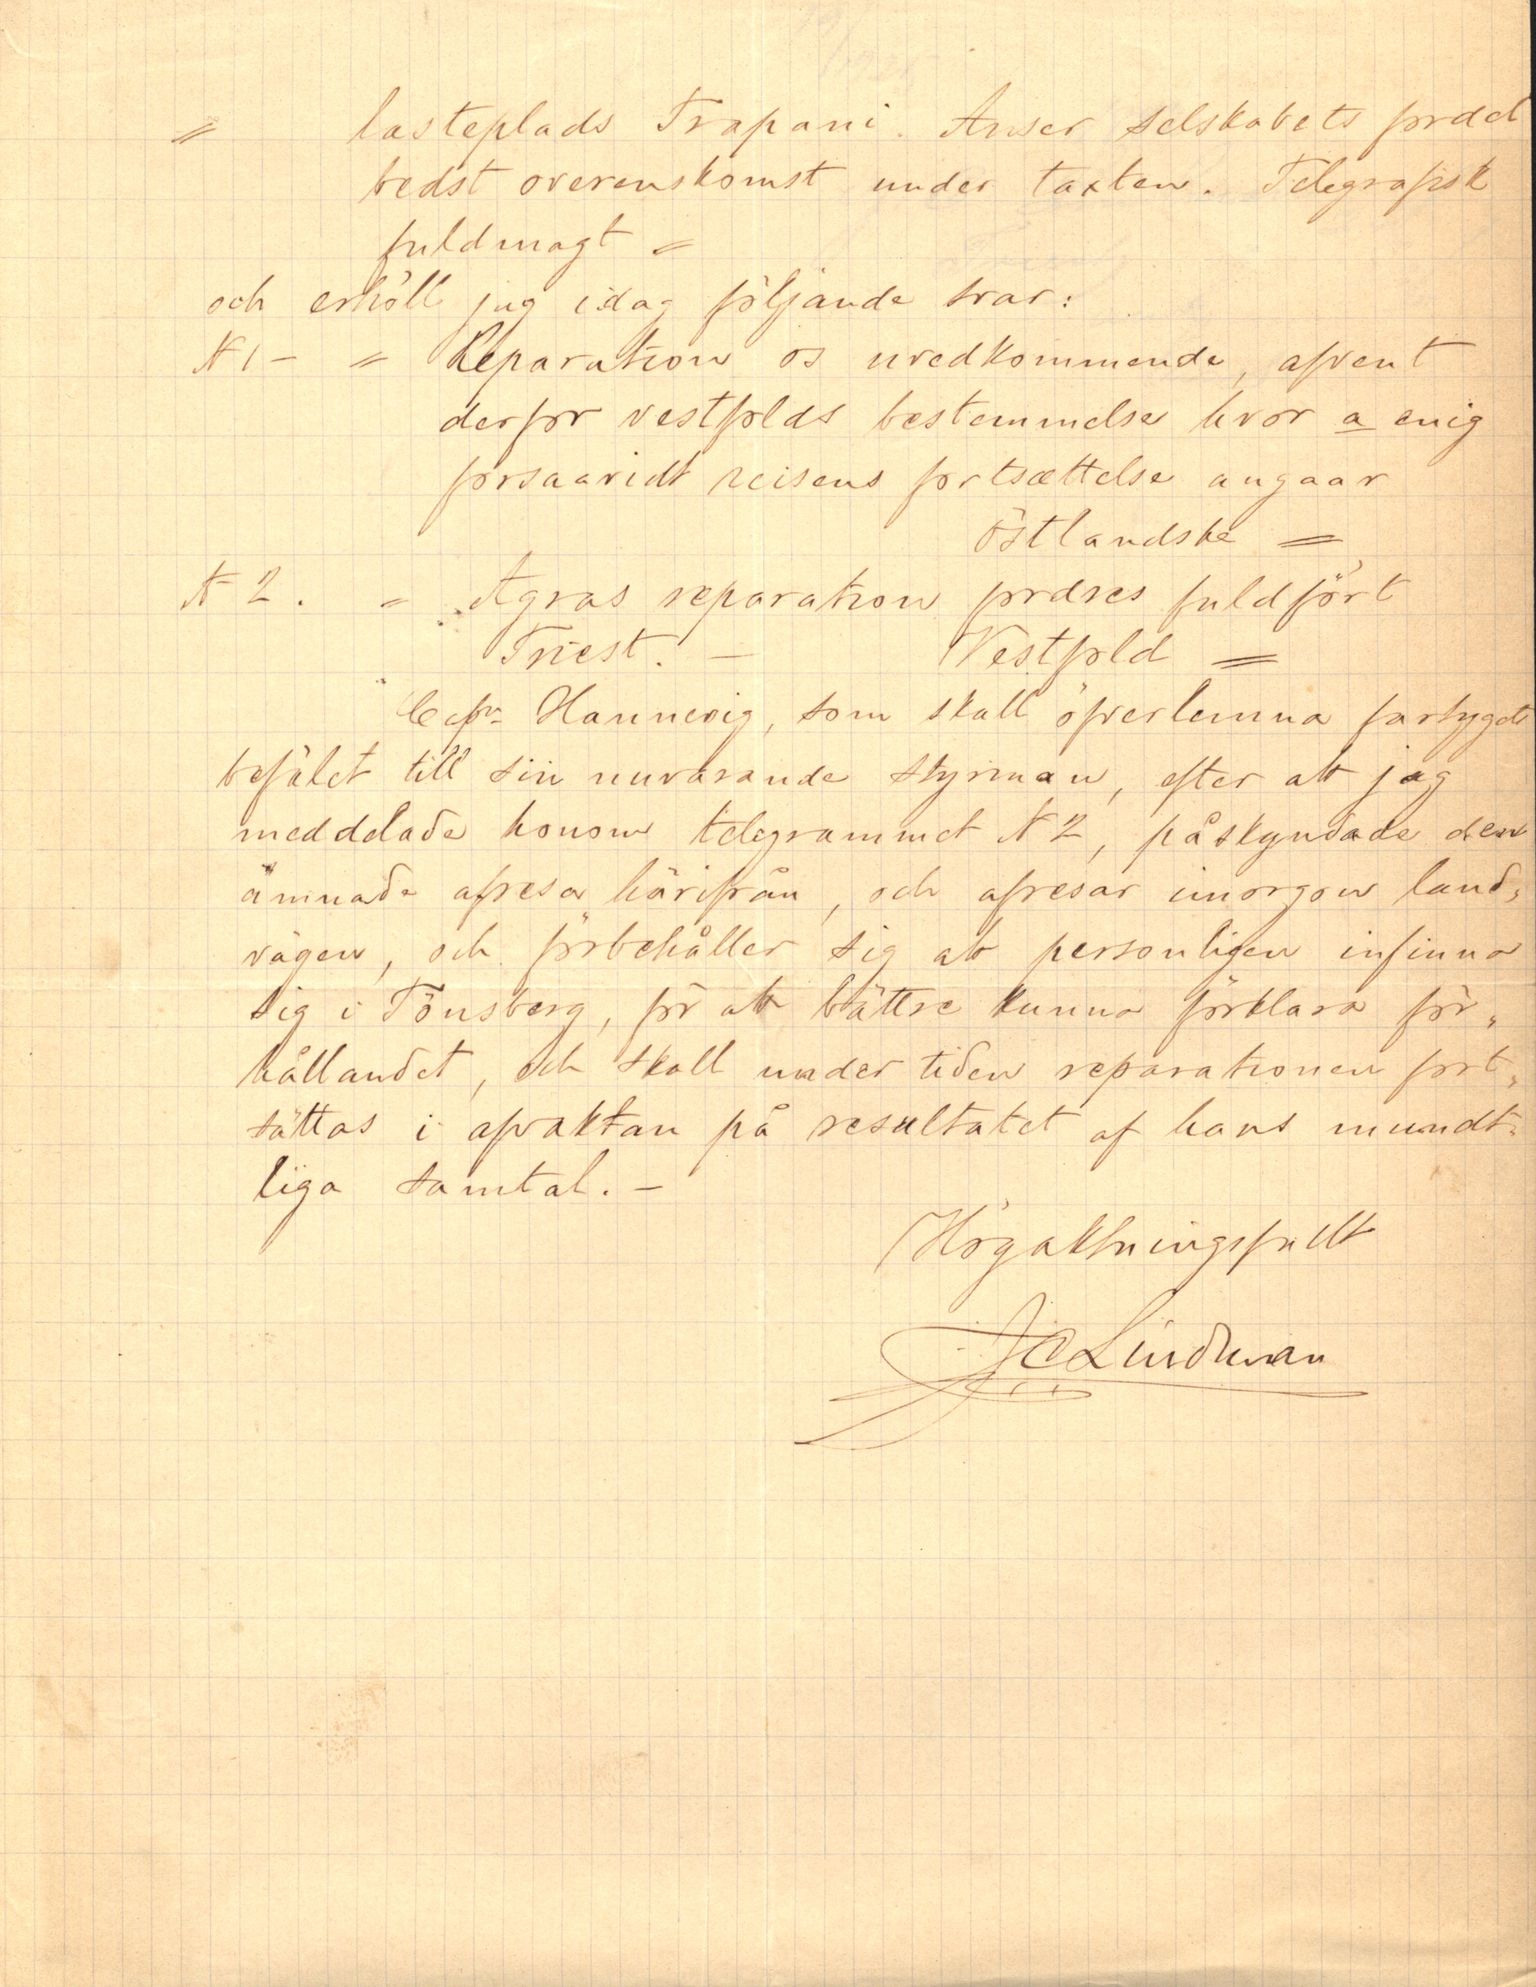 " lasteplads Trapani. Anser selskabets fordel
bedst overenskomst under taxten. Telegrafisk
fuldmagt "
och erhöll jag idag följande svar:
N 1 – " Reparation os uvedkommende, afvent
derfor vestfolds bestemmelse hvor a enig
forsaavidt reisens fortsættelse angaar
Östlandske =
N 2. " Agras reparation fordres fuldfört
Triest. – Vestfold =
Capn Hannevig, som skall öfverlemna fartygets
befälet till sin nuvarande styrman, efter att jag
meddelade honom telegrammet N 2, påskyndade den
ämnade afresa härifrån, och afresar imorgon land,
vägen, och förbehåller sig att personligen infinna
sig i Tönsberg, för att bättre kunna förklara för,
hållandet, och skall under tiden reparationen fort,
sättas i afvaktan på resultatet af hans mundt,
liga samtal. –
Högaktningsfullt
JC Lindman